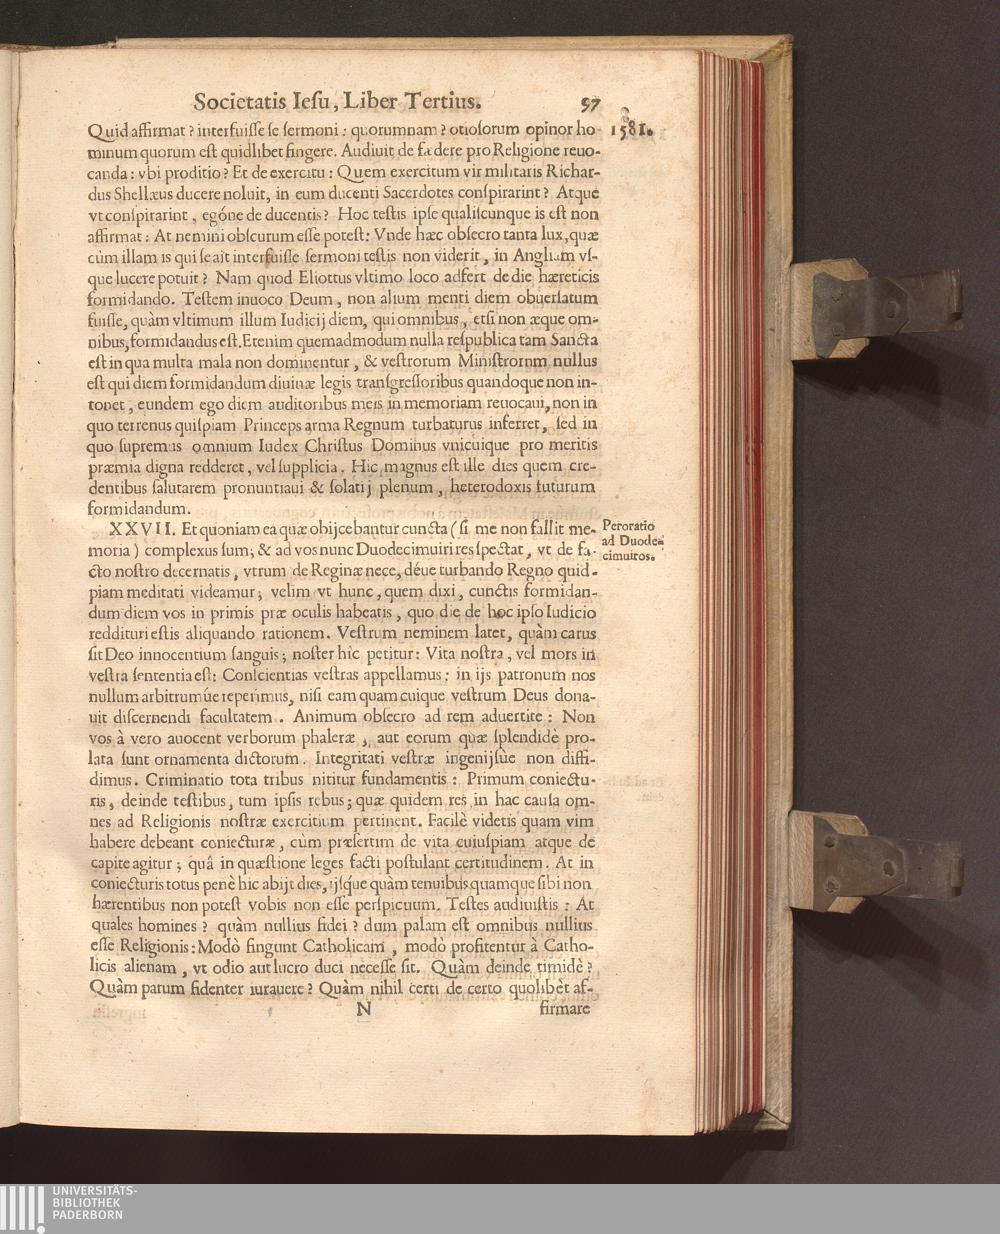 Societatis Iesu, Liber Tertius. 97
Quid affirmat? interfuisse se sermoni: quorumnam? otiosorum opinor ho- 1581.
minum quorum est quidlibet fingere. Audiuit de fædere pro Religione reuo-
canda: vbi proditio? Et de exercitu: Quem exercitum vir militaris Richar-
dus Shellæus ducere noluit, in eum ducenti Sacerdotes conspirarint? Atque
vt conspirarint, egóne de ducentis? Hoc testis ipse qualiscunque is est non
affirmat: At nemini obscurum esse potest: Vnde hæc obsecro tanta lux, quæ
cùm illam is qui se ait interfuisse sermoni testis non viderit, in Angliam vs-
que lucere potuit? Nam quod Eliottus vltimo loco adfert de die hæreticis
formidando. Testem inuoco Deum, non alium menti diem obuersatum
fuisse, quàm vltimum illum Iudicij diem, qui omnibus, etsi non æque om-
nibus, formidandus est. Etenim quemadmodum nulla respublica tam Sancta
est in qua multa mala non dominentur, & vestrorum Ministrornm nullus
est qui diem formidandum diuinæ legis transgressoribus quandoque non in-
tonet, eundem ego diem auditoribus meis in memoriam reuocaui, non in
quo terrenus quispiam Princeps arma Regnum turbaturus inferret, sed in
quo supremus omnium Iudex Christus Dominus vnicuique pro meritis
præmia digna redderet, vel supplicia. Hic magnus est ille dies quem cre-
dentibus salutarem pronuntiaui & solatij plenum, heterodoxis futurum
formidandum.
XXVII. Et quoniam ea quæ obijcebantur cuncta (si me non fallit me-
moria) complexus sum; & ad vos nunc Duodecimuiri res spectat, vt de fa-
cto nostro decernatis, vtrum de Reginæ nece, déue turbando Regno quid-
piam meditati videamur; velim vt hunc, quem dixi, cunctis formidan-
dum diem vos in primis præ oculis habeatis, quo die de hoc ipso Iudicio
reddituri estis aliquando rationem. Vestrum neminem latet, quàm carus
sit Deo innocentium sanguis; noster hic petitur: Vita nostra, vel mors in
vestra sententia est: Conscientias vestras appellamus: in ijs patronum nos
nullum arbitrumúe reperimus, nisi eam quam cuique vestrum Deus dona-
uit discernendi facultatem. Animum obsecro ad rem aduertite: Non
vos à vero auocent verborum phaleræ, aut eorum quæ splendidè pro-
lata sunt ornamenta dictorum. Integritati vestræ ingenijsùe non diffi-
dimus. Criminatio tota tribus nititur fundamentis: Primum coniectu-
ris, deinde testibus, tum ipsis rebus; quæ quidem res in hac causa om-
nes ad Religionis nostræ exercitium pertinent. Facilè videtis quam vim
habere debeant coniecturæ, cùm præsertim de vita cuiuspiam atque de
capite agitur; quâ in quæstione leges facti postulant certitudinem. At in
coniecturis totus penè hic abijt dies, ijsque quàm tenuibus quamque sibi non
hærentibus non potest vobis non esse perspicuum. Testes audiuistis: At
quales homines? quàm nullius fidei? dum palam est omnibus nullius
esse Religionis: Modò fingunt Catholicam, modò profitentur à Catho-
licis alienam, vt odio aut lucro duci necesse sit. Quàm deinde timidè?
Quàm parum fidenter iurauere? Quàm nihil certi de certo quolibèt af-
N firmare
Peroratio
ad Duode-
cimuiros.
UNIVERSITÄTS-
BIBLIOTHEK
PADERBORN